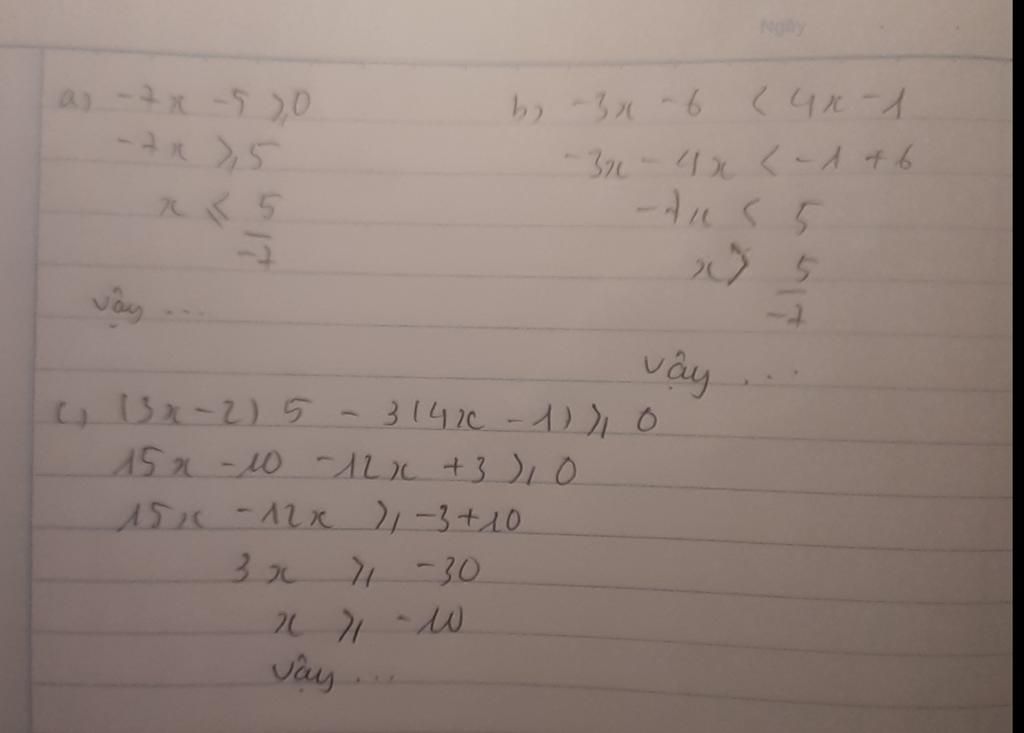 Ngày
a, -7x - 5 ≥ 0
-7x ≥ 5
x ≤ 5/-7
vậy ...
b, -3x - 6 < 4x - 1
-3x - 4x < -1 + 6
-7x < 5
x > 5/-7
vậy ...
c, (3x - 2) 5 - 3(4x - 1) ≥ 0
15x - 10 - 12x + 3 ≥ 0
15x - 12x ≥ -3 + 10
3x ≥ -30
x ≥ -10
vậy ...